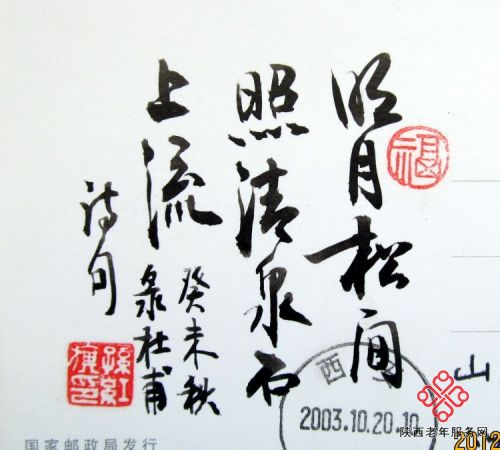 明月松间
照清泉石
上流
癸未秋
录杜甫
诗句
福
孫紅旗印
西
2003.10.20.10
山
国家邮政局发行
陕西老年服务网
2012